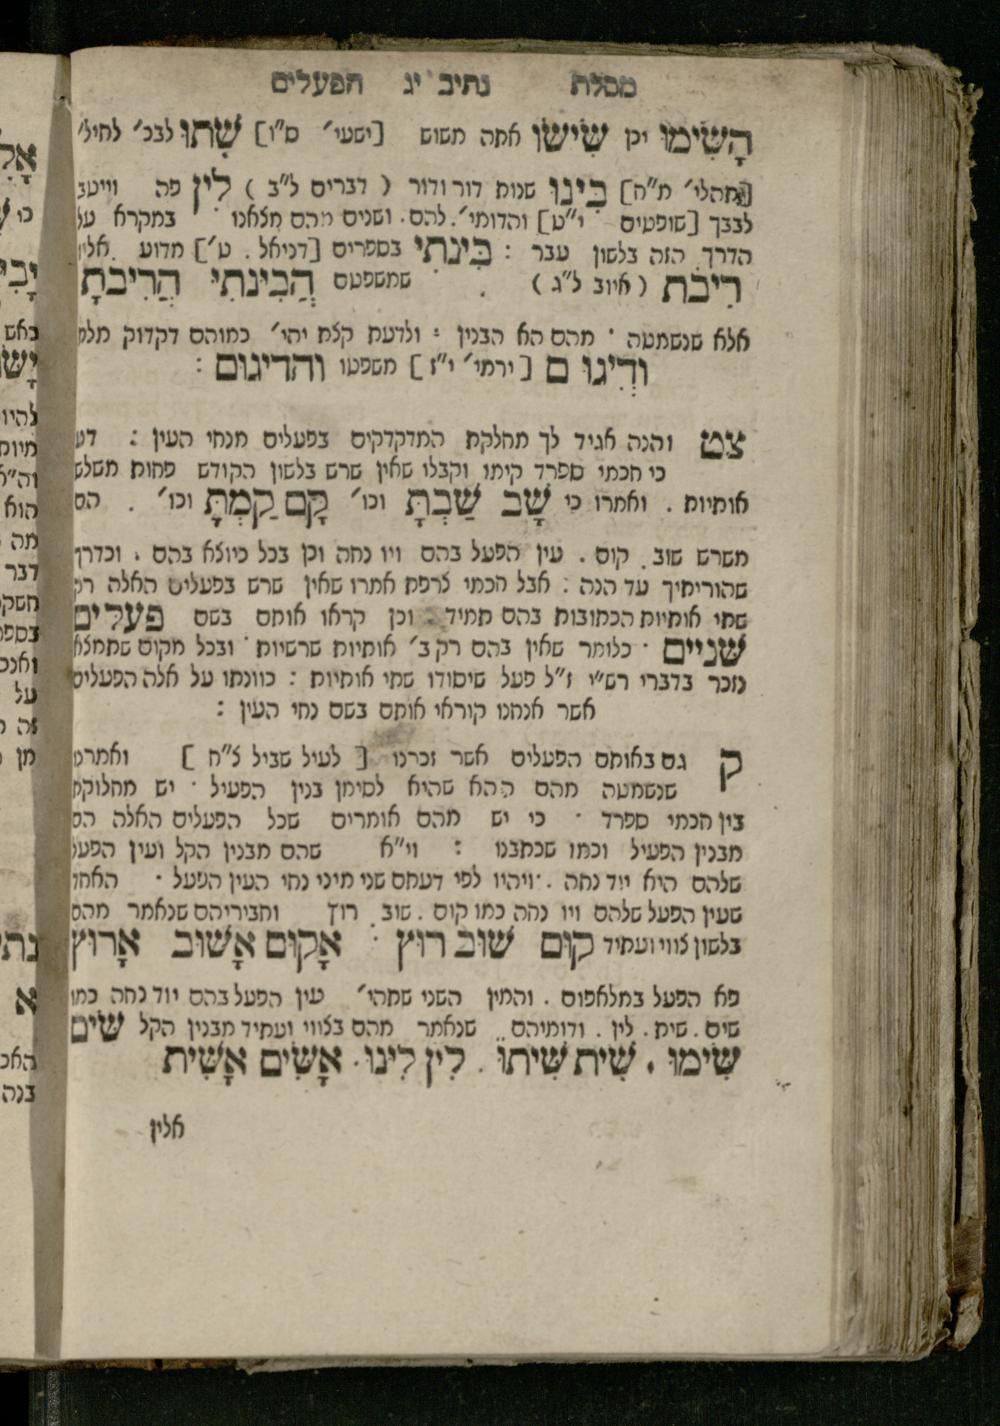 מסלת נתיב יג הפעלים
הָשִׂימוּ וכן שִׂישׂוּ אתה משוש [ישעי׳ ס״ו] שִׁתוּ לבכ׳ לחיל׳
[תהלי׳ מ״ח] בִּינוּ שנות דור ודור ( דברים ל״ב ) לִין פה וייטב
לבבך [שופטים י״ט] והדומי׳ להם . ושנים מהם מצאנו במקרא על
הדרך הזה בלשון עבר : בִּינֹתִי בספרים [דניאל . ט׳] מדוע אליו
רִיבֹתָ ( איוב ל״ג ) . שמשפטם הֲבִינֹתִי הֲרִיבֹתָ
אלא שנשמטה מהם הא הבנין : ולדעת קצת יהי׳ כמוהם דקדוק מלת
וְדִיגוּם [ירמי׳ י״ז] משפטו והדיגום :
צט והנה אגיד לך מחלקת המדקדקים בפעלים מנחי העין : דע
כי חכמי ספרד קימו וקבלו שאין שרש בלשון הקודש פחות משלש
אותיות . ואמרו כי שָׁב שַׁבְתָּ וכו׳ קָם קַמְתָּ וכו׳ . הם
משרש שוב . קום . עין הפעל בהם ויו נחה וכן בכל כיוצא בהם . וכדרך
שהוריתיך עד הנה : אבל חכמי צרפת אמרו שאין שרש בפעלים האלה רק
שתי אותיות הכתובות בהם תמיד . וכן קראו אותם בשם פעלים
שניים . כלומר שאין בהם רק ב׳ אותיות שרשיות . ובכל מקום שתמצא
נזכר בדברי רש״י ז״ל פעל שיסודו שתי אותיות : כוונתו על אלה הפעלים
אשר אנחנו קוראי אותם בשם נחי העין :
ק גם באותם הפעלים אשר זכרנו [ לעיל שביל צ״ח ] ואמרנו
שנשמטה מהם ההא שהיא לסימן בנין הפעיל . יש מחלוקת
בין חכמי ספרד . כי יש מהם אומרים שכל הפעלים האלה הם
מבנין הפעיל וכמו שכתבנו : וי״א שהם מבנין הקל ועין הפעל
שלהם היא יוד נחה . ויהיו לפי דעתם שני מיני נחי העין הפעל . האחד
שעין הפעל שלהם ויו נחה כמו קום . שוב . רוץ וחביריהם שנאמר מהם
בלשון צווי ועתיד קוּם שׁוּב רוּץ : אָקוּם אָשׁוּב אָרוּץ
פא הפעל במלאפום . והמין השני שתהי׳ עין הפעל בהם יוד נחה כמו
שים . שית . לין . ודומיהם שנאמר מהם בצווי ועתיד מבנין הקל שִׂים
שִׂימוּ . שִׁית שִׁיתוּ . לִין לִינוּ . אָשִׂים אָשִׁית
אלין